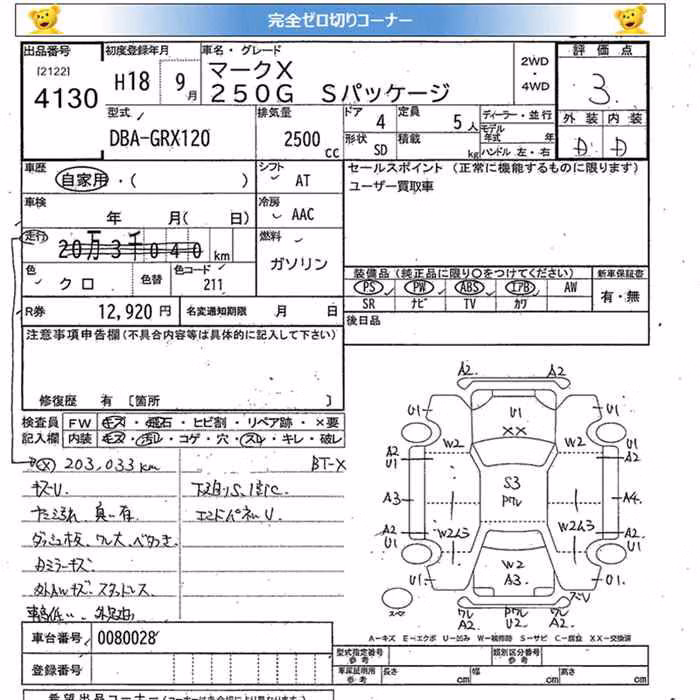 完全ゼロ切りコーナー
出品番号 初度登録年月 車名・グレード 評価点
[2122]
4130 H18 9月 マークX
250G Sパッケージ
2WD・4WD
3
外装 内装
D D
型式 排気量 ドア 定員 ディーラー・並行
DBA-GRX120 2500cc 4 5人 モデル年式 年
形状 SD 積載 kg ハンドル 左・右
車歴 シフト
自家用・( ) AT
セールスポイント(正常に機能するものに限ります)
ユーザー買取車
車検 冷房
年 月( 日) AAC
走行 20万3千040km
燃料
ガソリン
色 クロ 色替 色コード 211
装備品(純正品に限り〇をつけてください) 新車保証書
PS PW ABS エアB AW 有・無
SR ナビ TV カワ
R券 12,920円 名変通知期限 月 日
後日品
注意事項申告欄(不具合内容等は具体的に記入して下さい)
修復歴 有 [箇所 ]
検査員記入欄
FW キズ・飛石・ヒビ割・リペア跡・×要
内装 キズ・汚レ・コゲ・穴・スレ・キレ・破レ
203,033km BT-X
キズU.
エンドパネルU.
ダッシュ板、ワレ大、ベタつき
カミラーキズ
外AWキズ スタッドレス
A2. A2
U1 U1 U1 U1
XX
W2 W2
A2 U1 A2 U1
S3
Pワレ
A3 A4.
W2ムラ W2ムラ
A2 U1 A2 U1
W2
A3.
U1 U1.
スペア
ズレ
ワレ A2. Pワレ U2. ワレ A2
A-キズ E-エクボ U-凹み W-補修跡 S-サビ C-腐食 XX-交換済
車台番号 0080028
登録番号
型式指定番号 参考 類別区分番号 参考
車庫証明用 参考 長さ cm 幅 cm 高さ cm